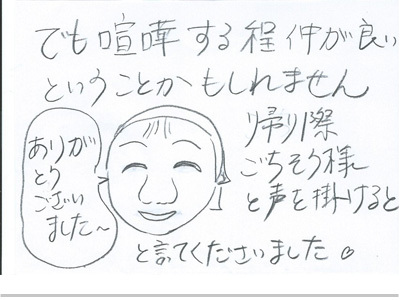 でも喧嘩する程仲が良い
ということかもしれません
帰り際
ごちそう様
と声を掛けると
ありが
とう
ござい
ました~
と言てくださいました。